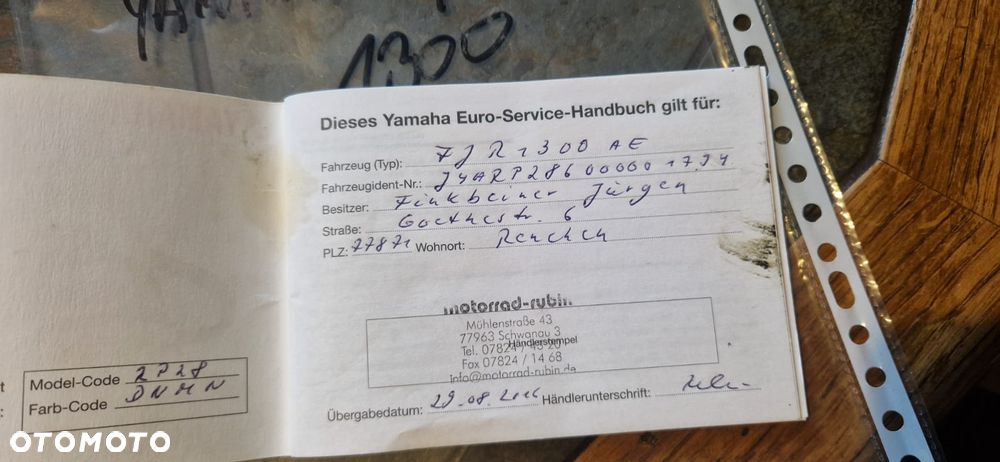 YAM
1300
Dieses Yamaha Euro-Service-Handbuch gilt für:
Fahrzeug (Typ): FJR 1300 AE
Fahrzeugident-Nr.: JYARP286000001794
Besitzer: Finkbeiner Jürgen
Straße: Goethestr. 6
PLZ: 77871 Wohnort: Renchen
motorrad-rubin
Mühlenstraße 43
77963 Schwanau 3
Tel. 07824 / 45 20
Händlerstempel
Fax 07824 / 14 68
info@motorrad-rubin.de
Übergabedatum: 29.08.2016 Händlerunterschrift:
Model-Code 2P28
Farb-Code DNMN
OTOMOTO